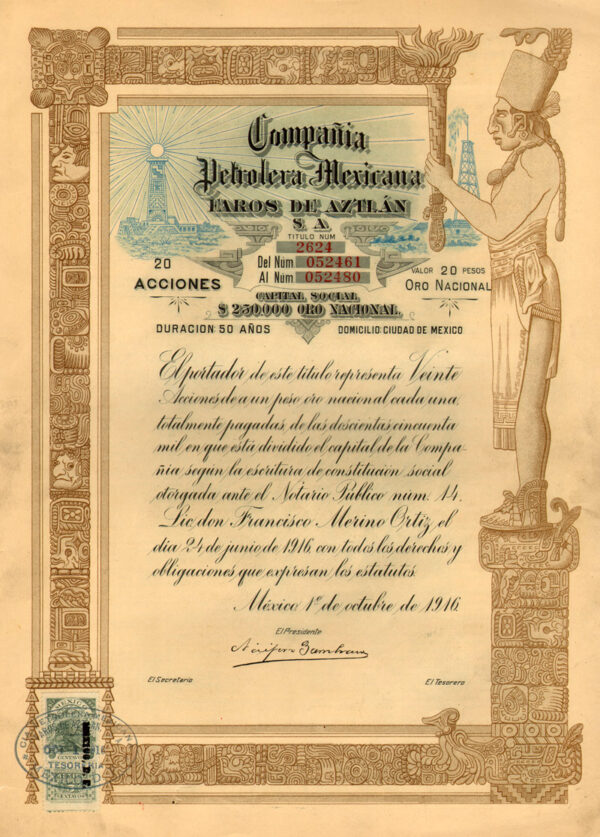 Compañia
Petrolera Mexicana
FAROS DE AZTLÁN
S. A.
TITULO NUM
2624
Del Núm 052461
Al Núm 052480
20
ACCIONES
VALOR 20 PESOS
ORO NACIONAL
CAPITAL SOCIAL
$ 250.000 ORO NACIONAL
DURACION 50 AÑOS
DOMICILIO: CIUDAD DE MEXICO
El portador de este titulo representa Veinte
Acciones de a un peso oro nacional cada una,
totalmente pagadas, de las doscientas cincuenta
mil en que está dividido el capital de la Compa-
ñia según la escritura de constitución social
otorgada ante el Notario Público núm. 14.
Lic. don Francisco Merino Ortiz, el
día 24 de junio de 1916, con todos los derechos y
obligaciones que expresan los estatutos.
México 1º de octubre de 1916
El Presidente
El Secretario
El Tesorero
MEXICO
TESORERIA
CENTAVOS
MEXICO D. F.